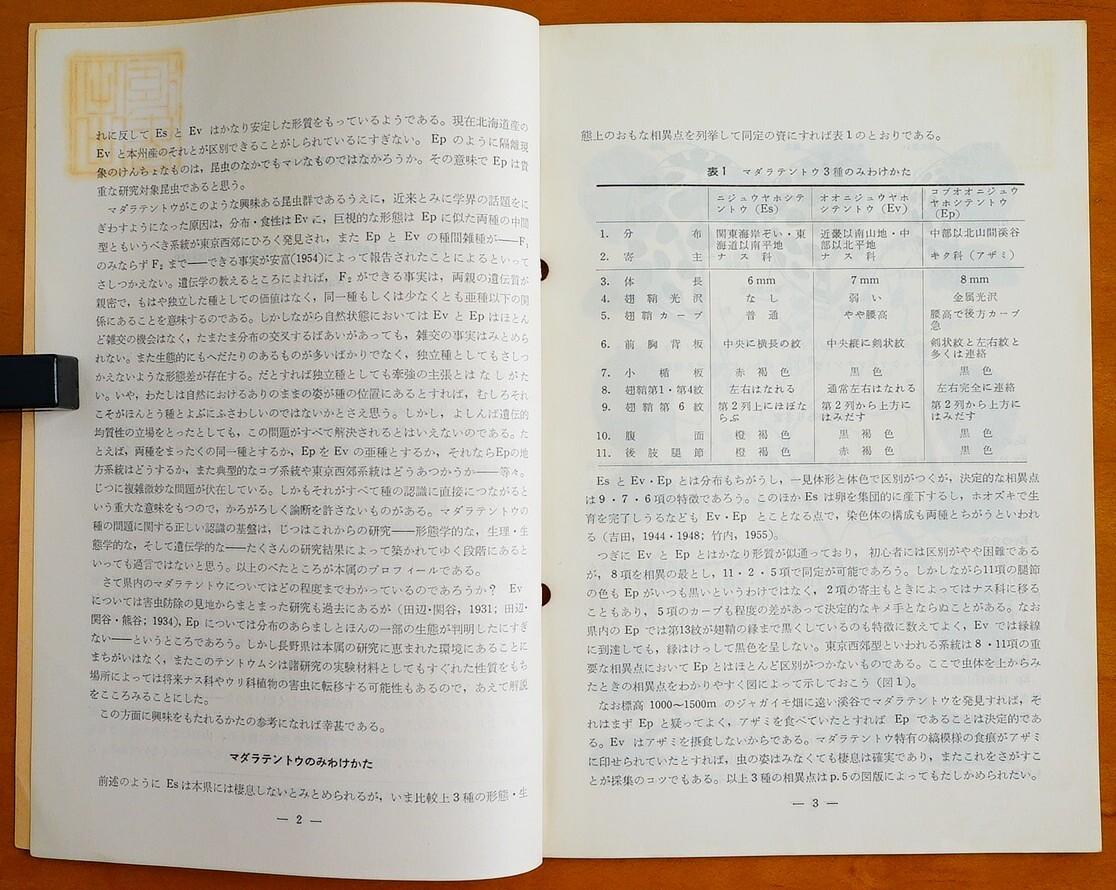 れに反して Es と Ev はかなり安定した形質をもっているようである。現在北海道産の
Ev と本州産のそれとが区別できることがしられているにすぎない。 Ep のように隔離現
象のけんちょなものは，昆虫のなかでもマレなものではなかろうか。その意味で Ep は貴
重な研究対象昆虫であると思う。
マダラテントウがこのような興味ある昆虫群であるうえに，近来とみに学界の話題をに
ぎわすようになった原因は，分布・食性は Ev に，巨視的な形態は Ep に似た両種の中間
型ともいうべき系統が東京西郊にひろく発見され，また Ep と Ev の種間雑種が――F₁
のみならず F₂ まで――できる事実が安富(1954)によって報告されたことによるといって
さしつかえない。遺伝学の教えるところによれば，F₂ ができる事実は，両親の遺伝質が
親密で，もはや独立した種としての価値はなく，同一種もしくは少なくとも亜種以下の関
係にあることを意味するのである。しかしながら自然状態においては Ev と Ep はほとん
ど雑交の機会はなく，たまたま分布の交叉するばあいがあっても，雑交の事実はみとめら
れない。また生態的にもへだたりのあるものが多いばかりでなく，独立種としてもさしつ
かえないような形態差が存在する。だとすれば独立種としても牽強の主張とは なしがた
い。いや，わたしは自然におけるありのままの姿が種の位置にあるとすれば，むしろそれ
こそがほんとう種とよぶにふさわしいのではないかとさえ思う。しかし，よしんば遺伝的
均質性の立場をとったとしても，この問題がすべて解決されるとはいえないのである。た
とえば，両種をまったくの同一種とするか，Ep を Ev の亜種とするか，それならEpの地
方系統はどうするか，また典型的なコブ系統や東京西郊系統はどうあつかうか――等々。
じつに複雑微妙な問題が伏在している。しかもそれがすべて種の認識に直接につながると
いう重大な意味をもつので，かろがろしく論断を許さないものがある。マダラテントウの
種の問題に関する正しい認識の基盤は，じつはこれからの研究――形態学的な，生理・生
態学的な，そして遺伝学的な――たくさんの研究結果によって築かれてゆく段階にあると
いっても過言ではないと思う。以上のべたところが本属のプロフィールである。
さて県内のマダラテントウについてはどの程度までわかっているのであろうか？ Ev
については害虫防除の見地からまとまった研究も過去にあるが（田辺・関谷，1931；田辺・
関谷・熊谷；1934），Ep については分布のあらましとほんの一部の生態が判明したにすぎ
ない――というところであろう。しかし長野県は本属の研究に恵まれた環境にあることに
まちがいはなく，またこのテントウムシは諸研究の実験材料としてもすぐれた性質をもち
場所によっては将来ナス科やウリ科植物の害虫に転移する可能性もあるので，あえて解説
をこころみることにした。
この方面に興味をもたれるかたの参考になれば幸甚である。
マダラテントウのみわけかた
前述のように Es は本県には棲息しないとみとめられるが，いま比較上３種の形態・生
― 2 ―
態上のおもな相異点を列挙して同定の資にすれば表１のとおりである。
表１ マダラテントウ３種のみわけかた
ニジュウヤホシテントウ（Es） オオニジュウヤホシテントウ（Ev） コブオオニジュウヤホシテントウ（Ep）
1. 分布 関東海岸ぞい・東海道以南平地 近畿以南山地・中部以北平地 中部以北山間渓谷
2. 寄主 ナス科 ナス科 キク科（アザミ）
3. 体長 6mm 7mm 8mm
4. 翅鞘光沢 なし 弱い 金属光沢
5. 翅鞘カーブ 普通 やや腰高 腰高で後方カーブ急
6. 前胸背板 中央に横長の紋 中央縦に剣状紋 剣状紋と左右紋と多くは連絡
7. 小楯板 赤褐色 黒色 黒色
8. 翅鞘第1・第4紋 左右はなれる 通常左右はなれる 左右完全に連絡
9. 翅鞘第6紋 第２列上にほぼならぶ 第２列から上方にはみだす 第２列から上方にはみだす
10. 腹面 橙褐色 黒褐色 黒色
11. 後肢腿節 橙褐色 赤褐色 黒色
Es と Ev・Ep とは分布もちがうし，一見体形と体色で区別がつくが，決定的な相異点
は９・７・６項の特徴であろう。このほか Es は卵を集団的に産下するし，ホオズキで生
育を完了しうるなども Ev・Ep とことなる点で，染色体の構成も両種とちがうといわれ
る（吉田，1944・1948；竹内，1955）。
つぎに Ev と Ep とはかなり形質が似通っており， 初心者には区別がやや困難である
が，８項を相異の最とし，11・２・５項で同定が可能であろう。しかしながら11項の腿節
の色も Ep がいつも黒いというわけではなく，２項の寄主もときによってはナス科に移る
こともあり，５項のカーブも程度の差があって決定的なキメ手とならぬことがある。なお
県内の Ep では第13紋が翅鞘の縁まで黒くしているのも特徴に数えてよく，Ev では縁線
に到達しても，縁はけっして黒色を呈しない。東京西郊型といわれる系統は８・11項の重
要な相異点において Ep とはほとんど区別がつかないものである。ここで虫体を上からみ
たときの相異点をわかりやすく図によって示しておこう（図１）。
なお標高 1000〜1500m のジャガイモ畑に遠い渓谷でマダラテントウを発見すれば，そ
れはまず Ep と疑ってよく，アザミを食べていたとすれば Ep であることは決定的であ
る。Ev はアザミを摂食しないからである。マダラテントウ特有の縞模様の食痕がアザミ
に印せられていたとすれば，虫の姿はみなくても棲息は確実であり，またこれをさがすこ
とが採集のコツでもある。以上３種の相異点は p.5 の図版によってもたしかめられたい。
― 3 ―